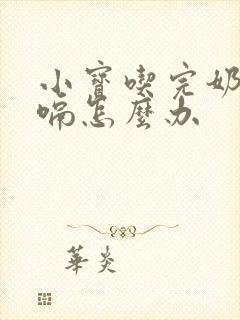 小寶喫完奶
喘怎麼办
華炎